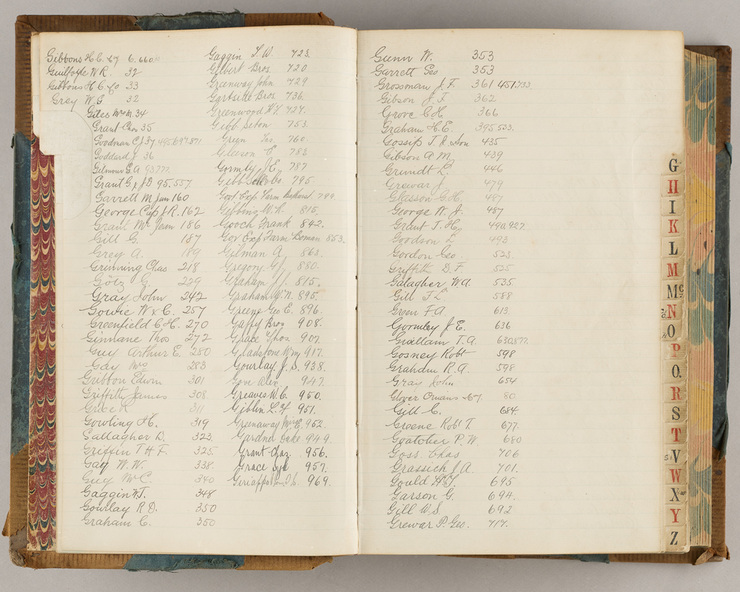 Gibbons H. C.
Guilfoyle W R. 32
Gibbons H C. & Co 33
Grey W. G 32
Giles Wm 34
Grant Geo 35
Goodman C J 37
Goddard J 36
Gilmour E. A
Grant G & J B 95. 557
Garrett M Jun 160
George Capt J. R. 162
Grant Mc Jean 186
Gill G. 187
Greig A.
Grinning Chas 218
Götz C. 229
Gray John 242
Gowie W & C. 257
Greenfield C. H. 270
Ginnane Thos 272
Guy Arthur E. 280
Gay Mrs 283
Gribbon Edwin 301
Griffiths James 308
Grice R 311
Gowling H. 319
Gallagher D. 323
Griffin T H F. 325
Gay W. W. 338
Guy Mc C 340
Gaggin W J. 348
Gourlay R. D. 350
Graham C. 350
Gaggin T. W. 723
Gilbert Bros 720
Greenway John 729
Gartside Bros 736
Greenwood 737
Gibb Seton 753
Green Geo 760
Gleeson T. 783
Gormly J. E. 787
795
799
Gibbons W. L. 815
Gooch Frank 842
Gov Exp Farm Bowen 853
Gilman A. 863
Gregory 880
Graham 815
Graham Mc N. 895
Greene Geo E. 896
Gaffy Bros 908
Grace Thos 907
Gladstone Wm 987
Gourlay J. S. 938
947
Greaves W. C. 950
Giblin L. Y. 951
Greenaway 952
Gardner Jake 949
Grant Chas. 956
Grace 957
969
Gunn W. 353
Garrett Geo 353
Grossman J. F. 361 451.733
Gibson J. F. 362
Grove C H. 366
Graham H. E. 395 523
Gossip T. R & Son 435
Gibson A M. 439
Grundt L. 446
Grewar J. 479
Glasson G. H. 487
George W. J. 487
Grant T. H.
Goodson L. 493
Gordon Geo 523
Griffith D. F. 525
Galagher W A. 535
Gill F L. 588
Green F A. 613
Gormley J E. 636
T. A.
Gosney Robt 598
Grahdm R. A. 598
Gray John 654
Glover 80
Gill C. 684
Greene Robt T. 677
Goatcher P. W. 680
Goss. Chas 706
Grassick J A. 701
Gould H J. 695
Garson G. 694
Gill W S. 692
Grewar P. Geo. 717
G
H
I
K
L
M
Mc
N
O
P
Q.
R
S
T
V
W
X
Y
Z